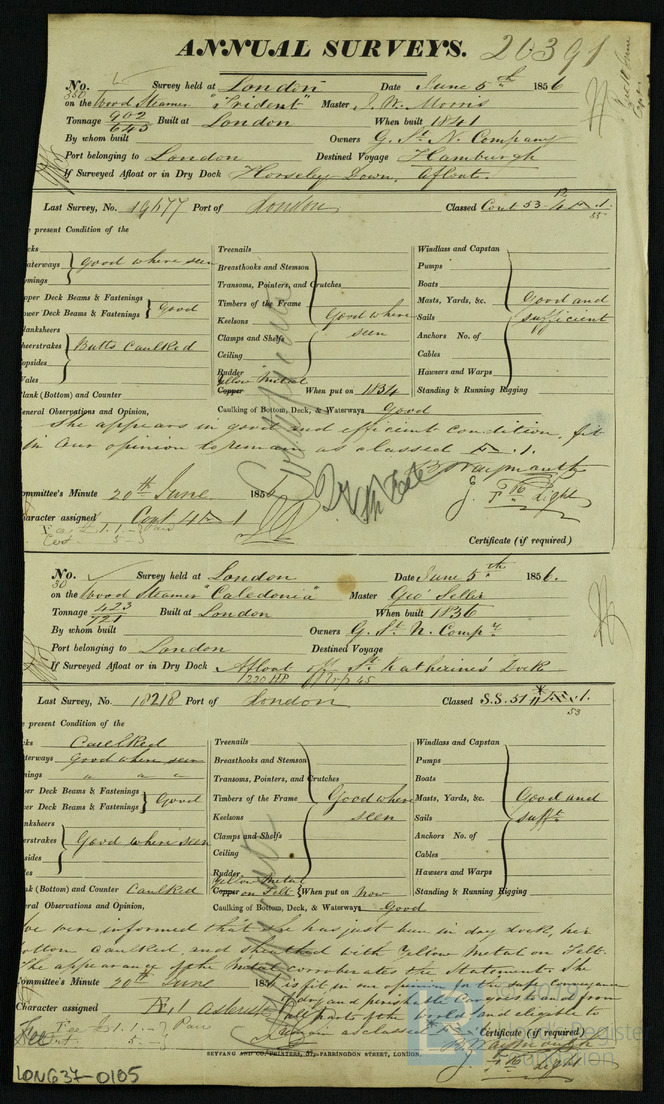 ANNUAL SURVEYS. 20391
No. 350 Survey held at London Date June 5th 1856
on the Wood Steamer "Trident" Master J. W. Morris
Tonnage 902/645 Built at London When built 1841
By whom built Owners G. St. N. Company
Port belonging to London Destined Voyage Hamburgh
If Surveyed Afloat or in Dry Dock Horsley Down, Afloat.
Last Survey, No. 19677 Port of London Classed Cont 53
present Condition of the
Treenails Windlass and Capstan
aterways good where seen Breasthooks and Stemson Pumps
Transoms, Pointers, and Crutches Boats
pper Deck Beams & Fastenings good Timbers of the Frame Good where seen Masts, Yards, &c. Good and sufficient
ower Deck Beams & Fastenings Keelsons Sails
lanksheers Clamps and Shelfs Anchors No. of
heerstrakes Butts Caulked Ceiling Cables
opsides Rudder Hawsers and Warps
Wales Yellow Metal
lank (Bottom) and Counter Copper When put on 1854 Standing & Running Rigging
eneral Observations and Opinion, Caulking of Bottom, Deck, & Waterways Good
She appears in good and efficient condition, fit
in our opinion to remain as classed Æ.1.
B Waymouth
ommittee's Minute 20th June 1856
J. Light
haracter assigned Cont 4 Æ 1
Certificate (if required)
No. 30 Survey held at London Date June 5th 1856.
on the Wood Steamer "Caledonia" Master Geo Seller
Tonnage 423/721 Built at London When built 1836
By whom built Owners G. St. N. Compy
Port belonging to London Destined Voyage
If Surveyed Afloat or in Dry Dock Afloat off St Katherine's Dock
220 HP
Last Survey, No. 18218 Port of London Classed S.S. 51
present Condition of the
ks Caulked Treenails Windlass and Capstan
terways Good where seen Breasthooks and Stemson Pumps
nings " " " Transoms, Pointers, and Crutches Boats
per Deck Beams & Fastenings Good Timbers of the Frame Good where seen Masts, Yards, &c. Good and sufft
wer Deck Beams & Fastenings Keelsons Sails
nksheers Clamps and Shelfs Anchors No. of
erstrakes Good where seen Ceiling Cables
sides Rudder Hawsers and Warps
les Yellow Metal
nk (Bottom) and Counter Caulked Copper on Felt When put on Now Standing & Running Rigging
ral Observations and Opinion, Caulking of Bottom, Deck, & Waterways Good
we were informed that she has just been in dry dock, her
ottom caulked, and sheathed with Yellow Metal on Felt.
The appearance of the metal corroborates the statement. She
ommittee's Minute 20th June 1856 is fit in our opinion for the safe Conveyance
of dry and perishable Cargoes to and from
Character assigned Æ 1 asterisk all parts of the world and eligible to
remain as classed Æ
Certificate (if required)
B. Waymouth
J. Light
SEYFANG AND CO., PRINTERS, 57, FARRINGDON STREET, LONDON.
LON637-0105